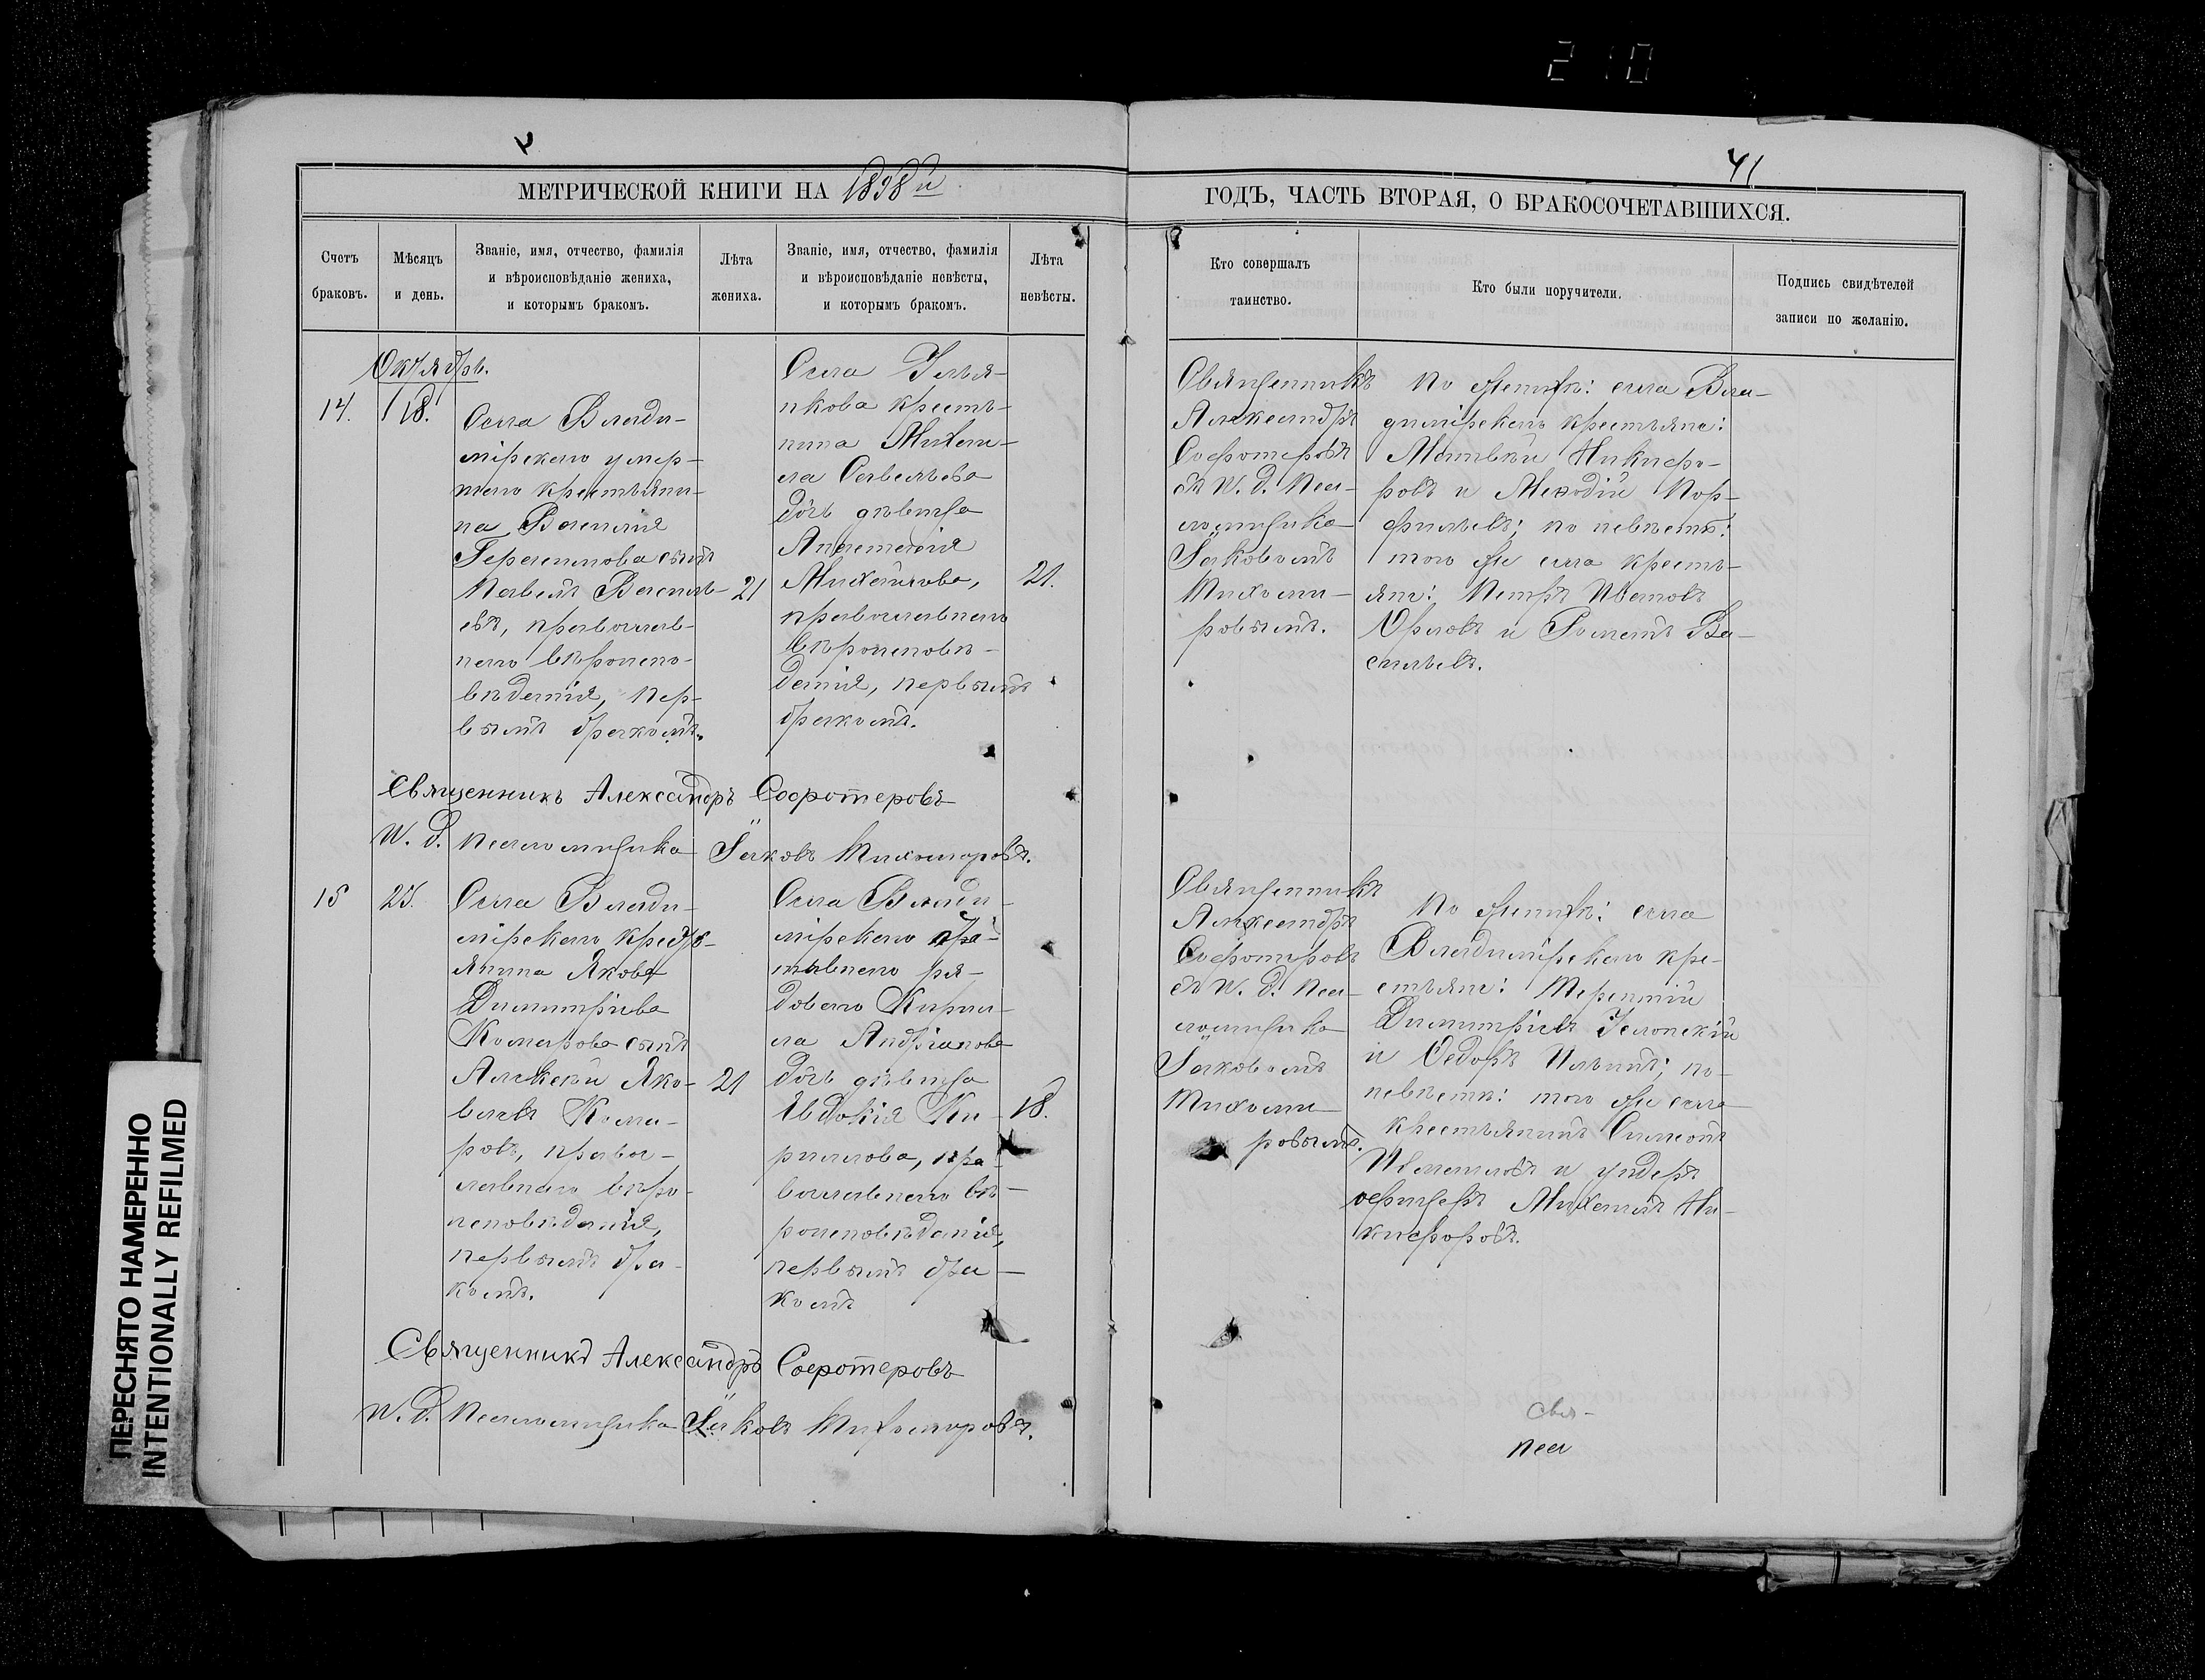 210
41
МЕТРИЧЕСКОЙ КНИГИ НА 1898й
ГОДЪ, ЧАСТЬ ВТОРАЯ, О БРАКОСОЧЕТАВШИХСЯ.
Счетъ
браковъ.
Мѣсяцъ
и день.
Званіе, имя, отчество, фамилія
и вѣроисповѣданіе жениха,
и которымъ бракомъ.
Лѣта
жениха.
Званіе, имя, отчество, фамилія
и вѣроисповѣданіе невѣсты,
и которымъ бракомъ.
Лѣта
невѣсты.
Кто совершалъ
таинство.
Кто были поручители.
Подпись свидѣтелей
записи по желанію.
Октябрь.
14.
18.
Села Влади-
мірскаго умер-
шаго крестьяни-
на Василія
Герасимова сынъ
Павелъ Василь-
евъ, православ-
наго вѣроиспо-
вѣданія, пер-
вымъ бракомъ.
21
Села
нкова кресть-
нина Михаи-
ла Савельева
дочь дѣвица
Анастасія
Михайлова,
православнаго
вѣроисповѣ-
данія, первымъ
бракомъ.
21.
Священникъ
Александръ
Софотеровъ
съ И. д. Пса-
ломщика
Іаковомъ
Тихоми-
ровымъ.
По женихѣ: села Вла-
димірскаго крестьяне:
Матвѣй Никифо-
ровъ и Меѳодій Пор-
фирьевъ; по невѣстѣ:
того же села кресть-
яне: Петръ Ивановъ
Орловъ и Романъ Ва-
сильевъ.
Священникъ Александръ Софотеровъ
И. д. Псаломщика Іаковъ Тихомировъ.
15
25.
Села Влади-
мірскаго кресть-
янина Якова
Димитріева
Комарова сынъ
Алексѣй Яко-
влевъ Кома-
ровъ, право-
славнаго вѣро-
исповѣданія,
первымъ бра-
комъ.
21
Села Влади-
мірскаго
ставнаго ря-
доваго Кирил-
ла Андріанова
дочь дѣвица
Евдокія Ки-
риллова, пра-
вославнаго вѣ-
роисповѣданія,
первымъ бра-
комъ
18.
Священникъ
Александръ
Софотеровъ
съ И. д. Пса-
ломщика
Іаковомъ
Тихоми-
ровымъ.
По женихѣ: села
Владимірскаго кре-
стьяне: Терентій
Димитріевъ
и Ѳедоръ Ильинъ; по
невѣстѣ: того же села
крестьянинъ Симеонъ
Измаиловъ и ундеръ
офицеръ Михаилъ Ни-
кифоровъ.
Священникъ Александръ Софотеровъ
И. д. Псаломщика Іаковъ Тихомировъ.
Свя-
Пса
ПЕРЕСНЯТО НАМЕРЕННО
INTENTIONALLY REFILMED